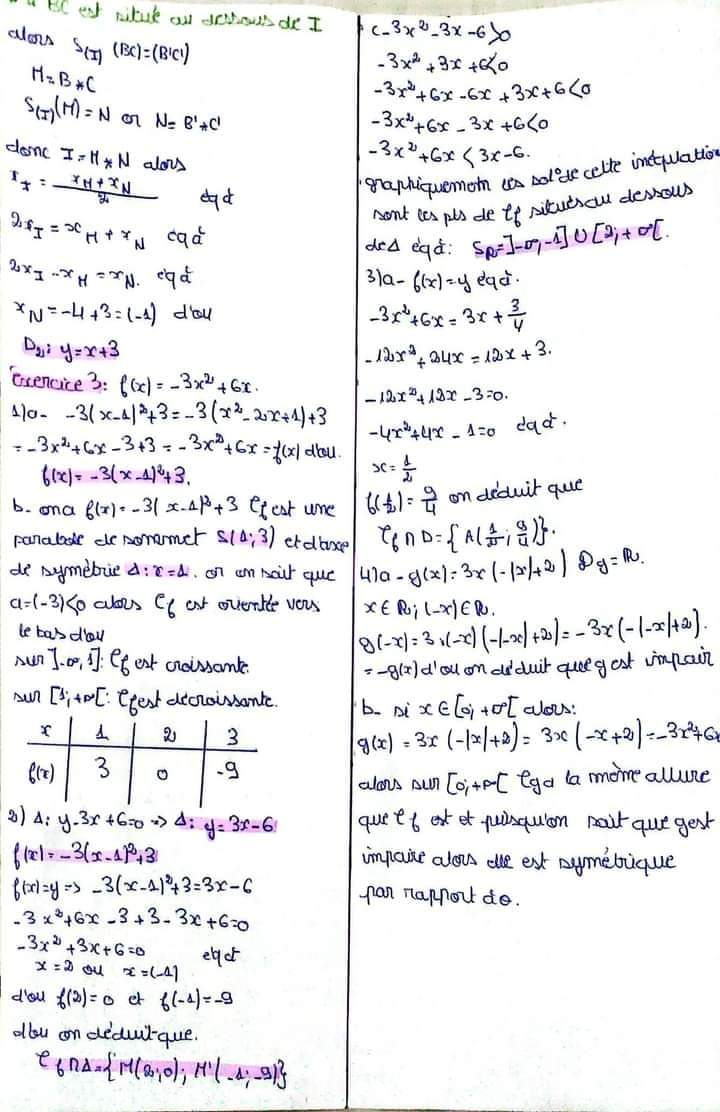 BC est situé au dessous de I
alors S(I) (BC)=(B'C')
M=B*C
S(I)(M)=N or N=B'*C'
donc I=M*N alors
x_I = (x_M+x_N)/2 éqà
2x_I = x_M + x_N éqà
2x_I - x_M = x_N. éqà
x_N = -4+3=(-1) d'où
D₂: y=x+3
Exercice 3: f(x) = -3x²+6x.
1)a- -3(x-1)²+3 = -3(x²-2x+1)+3
= -3x²+6x-3+3 = -3x²+6x = f(x) d'ou
f(x) = -3(x-1)²+3.
b- on a f(x) = -3(x-1)²+3 Cf est une
parabole de sommet S(1;3) et d'axe
de symétrie Δ: x=1. or on sait que
a=(-3)<0 alors Cf est orientée vers
le bas d'ou
sur ]-∞,1]: Cf est croissante
sur [1;+∞[: Cf est décroissante.
x | 1 | 2 | 3
f(x) | 3 | 0 | -9
2) Δ: y-3x+6=0 => Δ: y=3x-6
f(x) = -3(x-1)²+3
f(x)=y => -3(x-1)²+3=3x-6
-3x²+6x-3+3-3x+6=0
-3x²+3x+6=0 éqà
x=2 ou x=(-1)
d'ou f(2)=0 et f(-1)=-9
d'ou on déduit que.
Cf∩Δ={M(2;0); M'(-1;-9)}
c- 3x²-3x-6>0
-3x²+3x+6<0
-3x²+6x-6x+3x+6<0
-3x²+6x-3x+6<0
-3x²+6x<3x-6.
graphiquement les sol° de cette inéquation
sont les pts de Cf situés au dessous
de Δ éqà: S_R=]-∞,-1]∪[2;+∞[.
3)a- f(x)=y éqà.
-3x²+6x=3x+3/4
-12x²+24x=12x+3.
-12x²+12x-3=0.
-4x²+4x-1=0 éqà.
x=1/2
f(1/2)=9/4 on déduit que
Cf∩D={A(1/2;9/4)}.
4)a- g(x)=3x(-|x|+2) Dg=R.
x∈R; (-x)∈R.
g(-x)=3x(-x)(-|-x|+2)=-3x(-|-x|+2).
=-g(x) d'ou on déduit que g est impair
b- si x∈[0;+∞[ alors:
g(x)=3x(-|x|+2)=3x(-x+2)=-3x²+6x
alors sur [0;+∞[ Cg a la même allure
que Cf est et puisqu'on sait que g est
impaire alors elle est symétrique
par rapport à o.